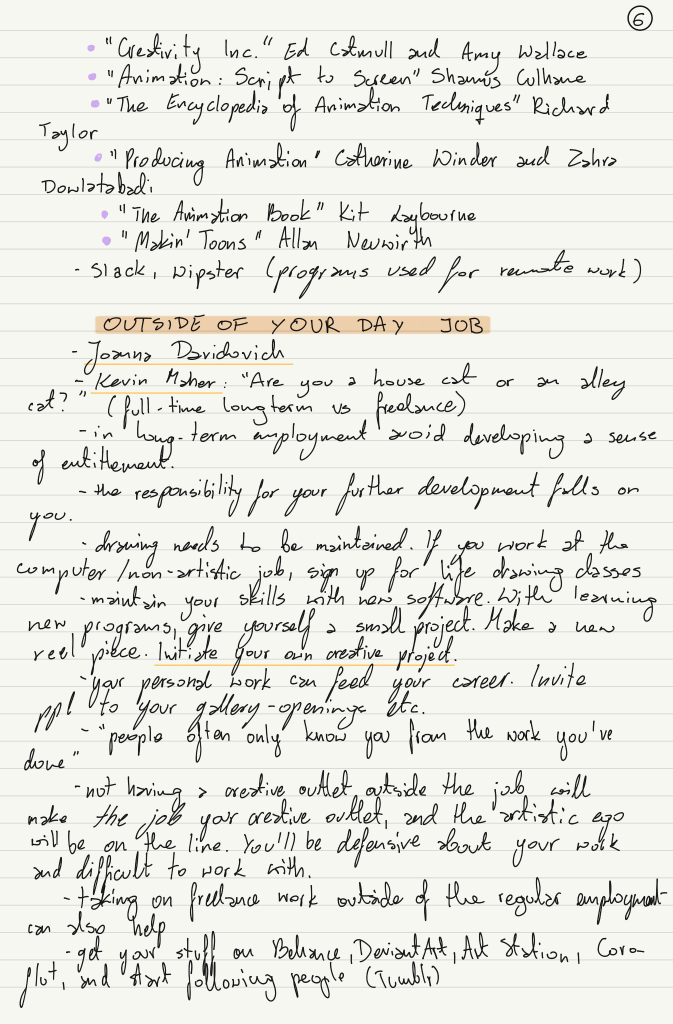 6
• "Creativity Inc." Ed Catmull and Amy Wallace
• "Animation: Script to Screen" Shamus Culhane
• "The Encyclopedia of Animation Techniques" Richard
Taylor
• "Producing Animation" Catherine Winder and Zahra
Dowlatabadi
• "The Animation Book" Kit Laybourne
• "Makin' Toons" Allan Neuwirth
- Slack, Wipster (programs used for remote work)
OUTSIDE OF YOUR DAY JOB
- Joanna Davidovich
- Kevin Maher: "Are you a house cat or an alley
cat?" (full-time longterm vs freelance)
- in long-term employment avoid developing a sense
of entitlement.
- the responsibility for your further development falls on
you.
- drawing needs to be maintained. If you work at the
computer/non-artistic job, sign up for life drawing classes
- maintain your skills with new software. With learning
new programs, give yourself a small project. Make a new
reel piece. Initiate your own creative project.
- your personal work can feed your career. Invite
ppl to your gallery-openings etc.
- "people often only know you from the work you've
done"
- not having a creative outlet outside the job will
make the job your creative outlet, and the artistic ego
will be on the line. You'll be defensive about your work
and difficult to work with.
- taking on freelance work outside of the regular employment
can also help
- get your stuff on Behance, DeviantArt, Art Station, Coro-
flot, and start following people (Tumblr)